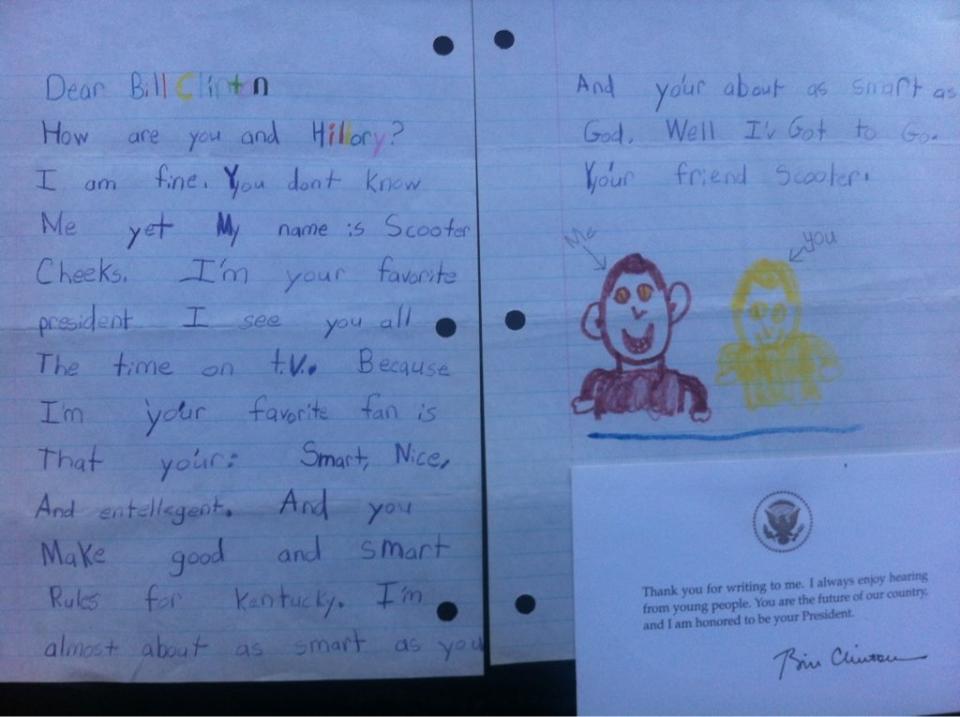 Dear Bill Clinton
How are you and Hillory?
I am fine. You dont know
Me yet My name is Scooter
Cheeks. I'm your favorite
president I see you all
The time on t.V. Because
I'm your favorite fan is
That your: Smart, Nice,
And entellegent. And you
Make good and smart
Rules for Kentucky. I'm
almost about as smart as you
And your about as smart as
God. Well I'v Got to Go.
Your friend Scooter.
Me
you
Thank you for writing to me. I always enjoy hearing
from young people. You are the future of our country,
and I am honored to be your President.
Bill Clinton